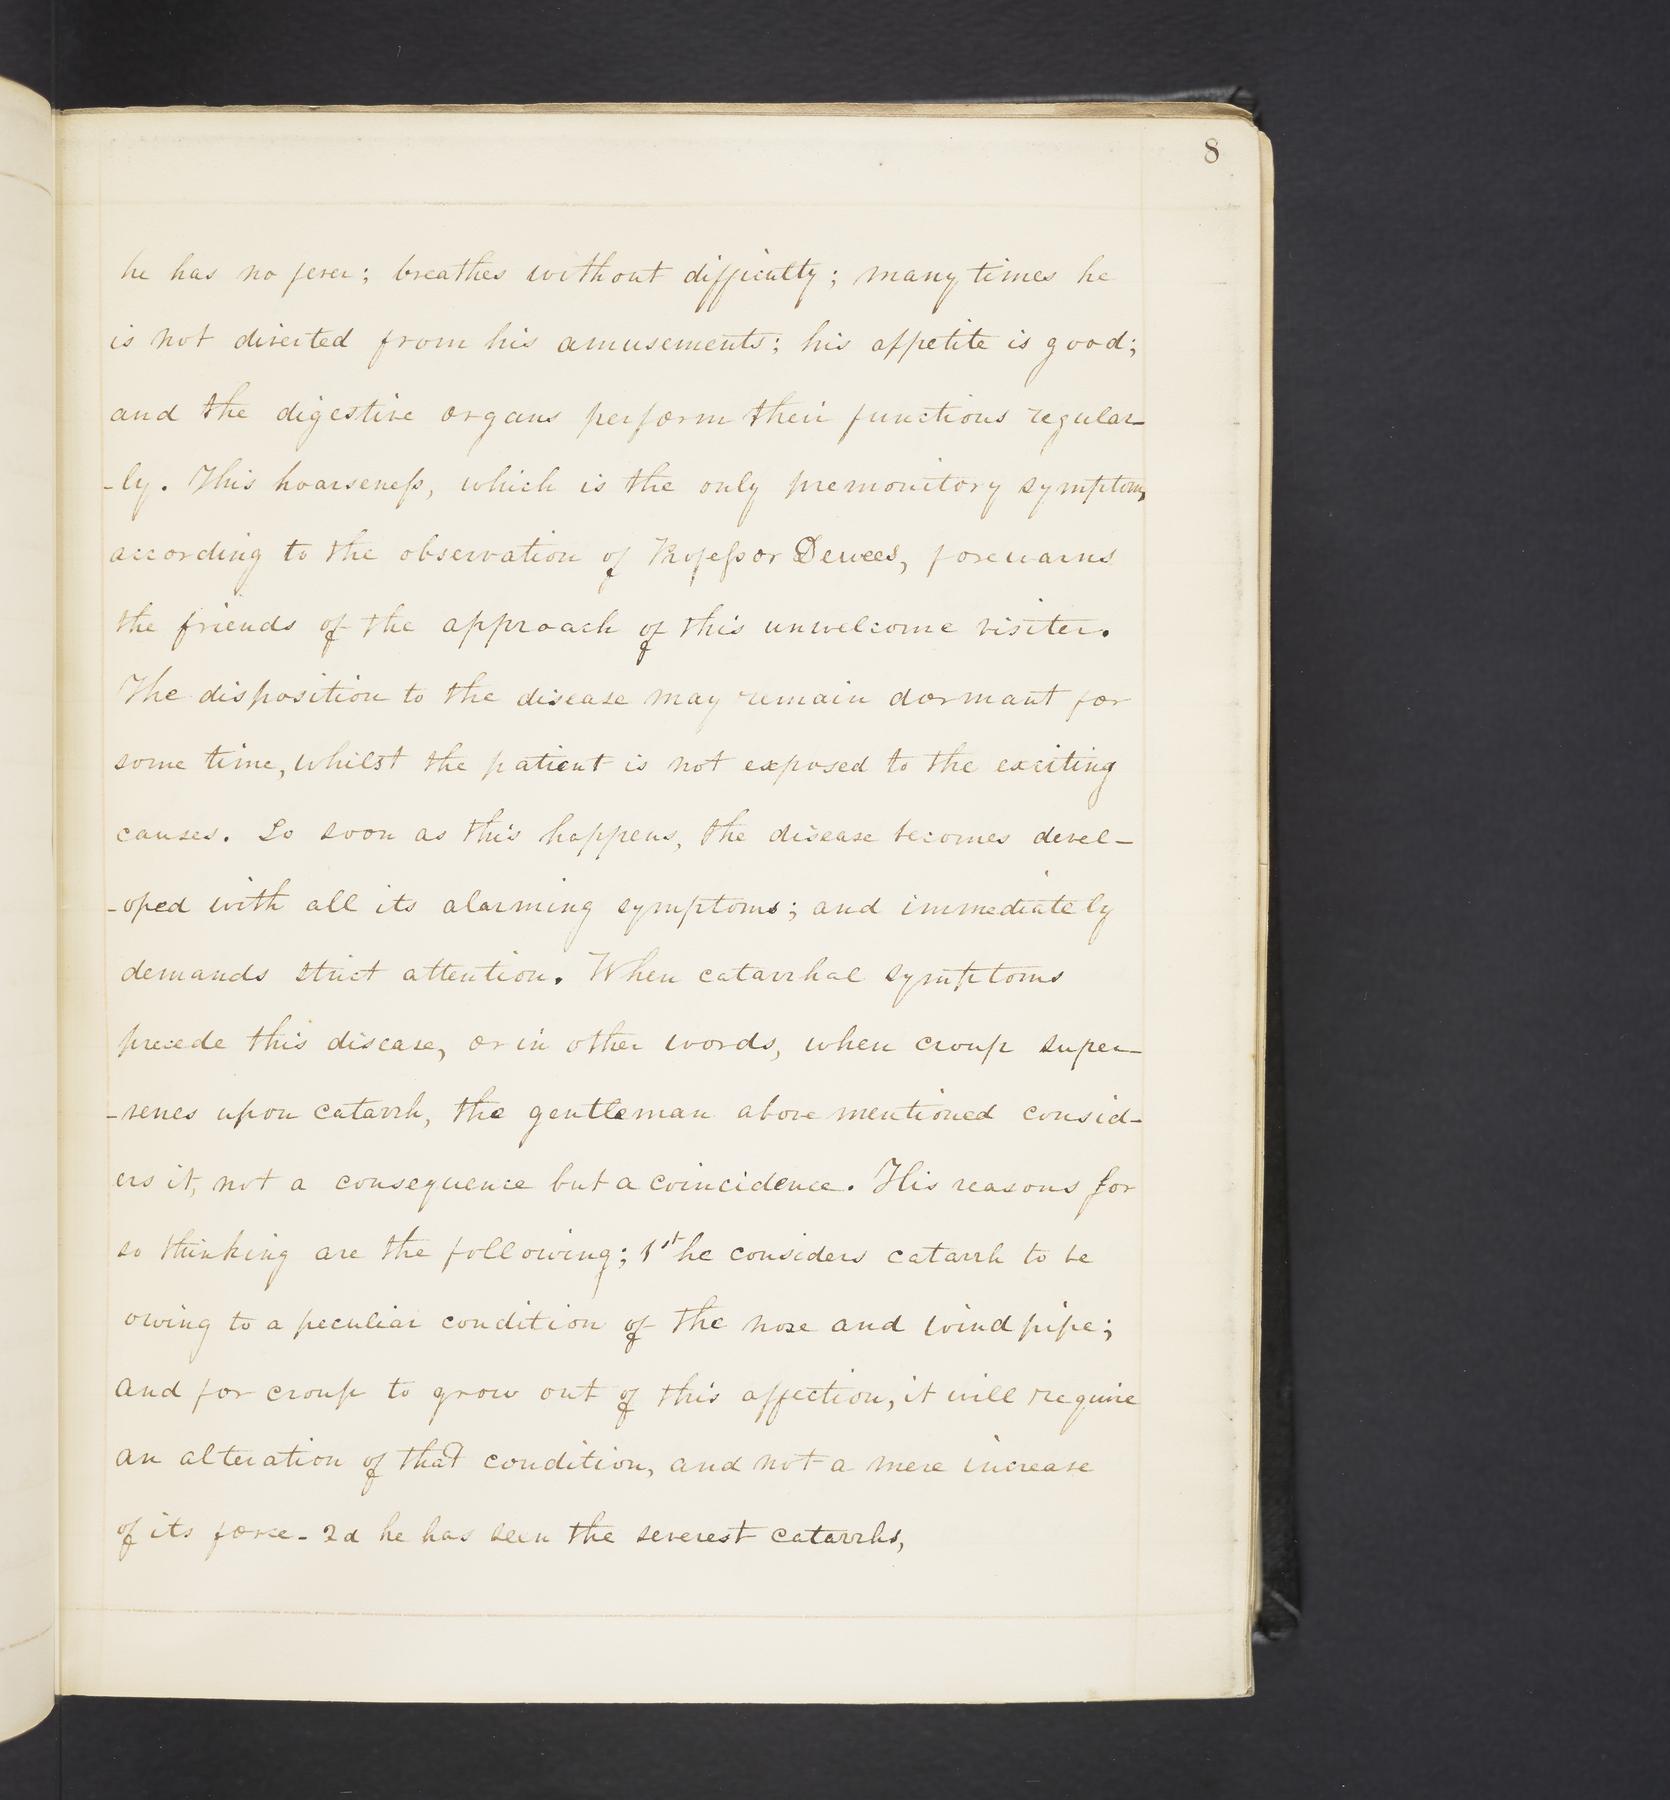 8
he has no fever; breathes without difficulty; many times he
is not diverted from his amusements; his appetite is good;
and the digestive organs perform their functions regular-
-ly. This hoarseneſs, which is the only premonitory symptom,
according to the observation of Profeſsor Dewees, forewarns
the friends of the approach of this unwelcome visiter.
The disposition to the disease may remain dormant for
some time, whilst the patient is not exposed to the exciting
causes. So soon as this happens, the disease becomes devel-
-oped with all its alarming symptoms; and immediately
demands strict attention. When catarrhal symptoms
precede this disease, or in other words, when croup super-
-venes upon catarrh, the gentleman above mentioned consid-
ers it, not a consequence but a coincidence. His reasons for
so thinking are the following; 1st he considers catarrh to be
owing to a peculiar condition of the nose and windpipe;
and for croup to grow out of this affection, it will require
an alteration of that condition, and not a mere increase
of its force- 2d he has seen the severest catarrhs,